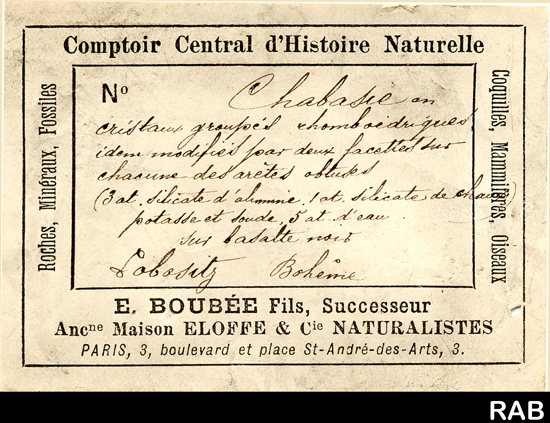 Comptoir Central d'Histoire Naturelle
Roches, Minéraux, Fossiles
Nº
Chabasie en
cristaux groupés rhomboédriques
idem modifiés par deux facettes sur
chacune des arêtes obtuses
(3 at. silicate d'alumine, 1 at. silicate de chaux
potasse et soude, 5 at. d'eau
sur basalte noir
Lobositz Bohême
Coquilles, Mammifères, Oiseaux
E. BOUBÉE Fils, Successeur
Ancⁿᵉ Maison ELOFFE & Cⁱᵉ NATURALISTES
PARIS, 3, boulevard et place St-André-des-Arts, 3.
RAB